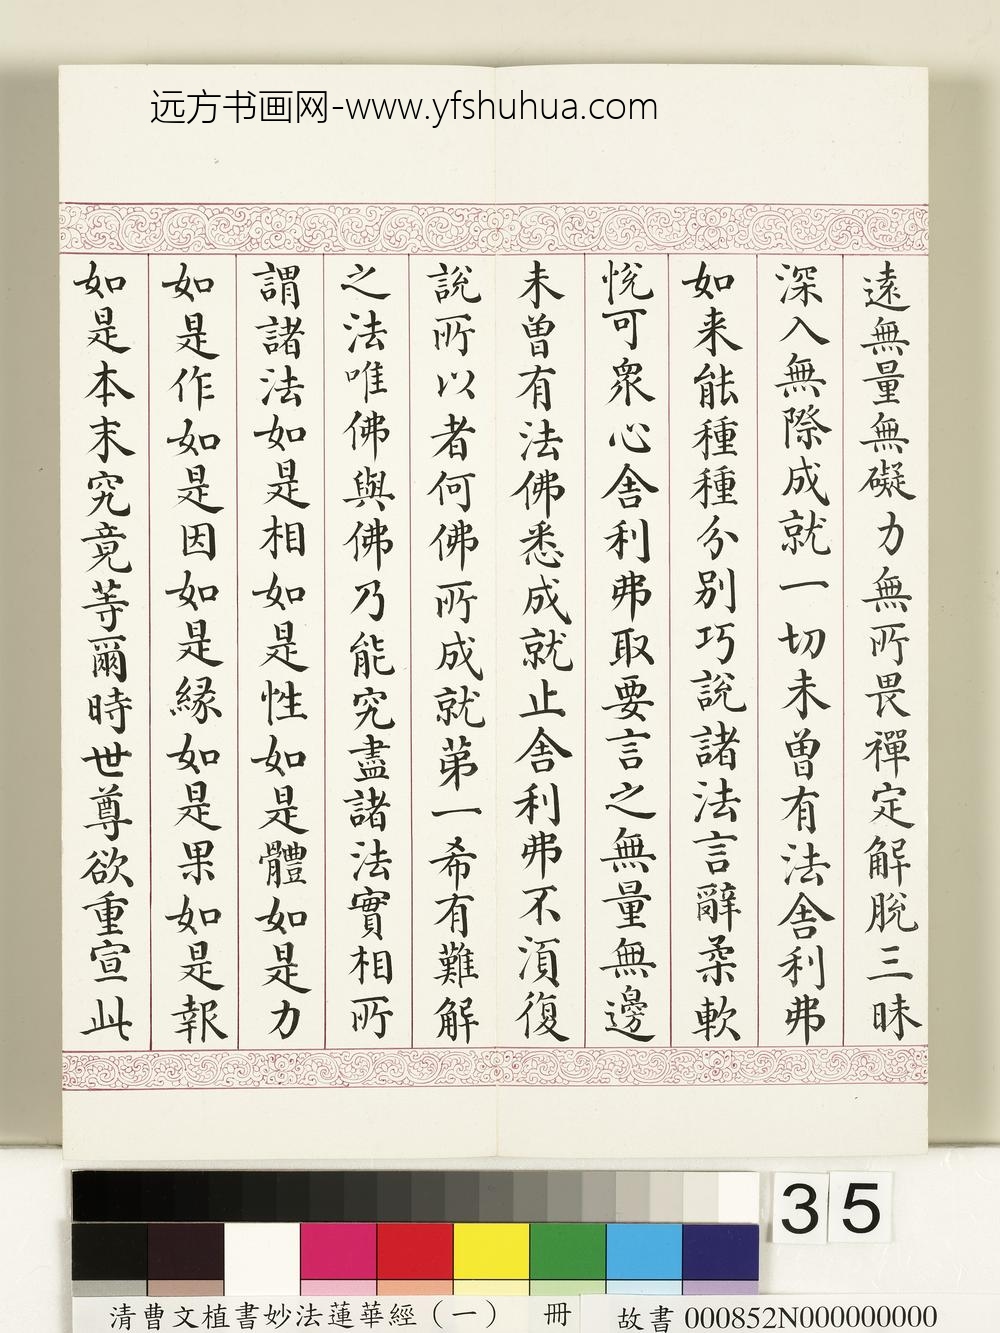 远方书画网-www.yfshuhua.com
遠無量無礙力無所畏禪定解脫三昧
深入無際成就一切未曾有法舍利弗
如来能種種分別巧說諸法言辭柔軟
悅可衆心舍利弗取要言之無量無邊
未曾有法佛悉成就止舍利弗不須復
說所以者何佛所成就第一希有難解
之法唯佛與佛乃能究盡諸法實相所
謂諸法如是相如是性如是體如是力
如是作如是因如是緣如是果如是報
如是本末究竟等爾時世尊欲重宣此
35
清曹文植書妙法蓮華經（一） 冊
故書000852N000000000